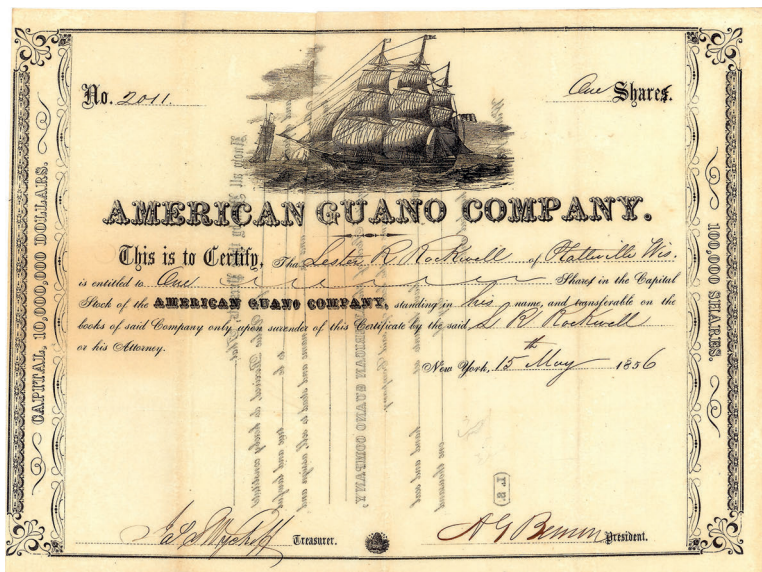 No. 2011.
One Shares.
AMERICAN GUANO COMPANY.
This is to Certify, That Lester R Rockwell of Platteville Wis.
is entitled to One Shares in the Capital
Stock of the AMERICAN GUANO COMPANY, standing in his name, and transferable on the
books of said Company only upon surender of this Certificate by the said L R Rockwell
or his Attorney.
New York, 15th May 1856
Treasurer.
A G Benson President.
CAPITAL, 10,000,000 DOLLARS.
100,000 SHARES.